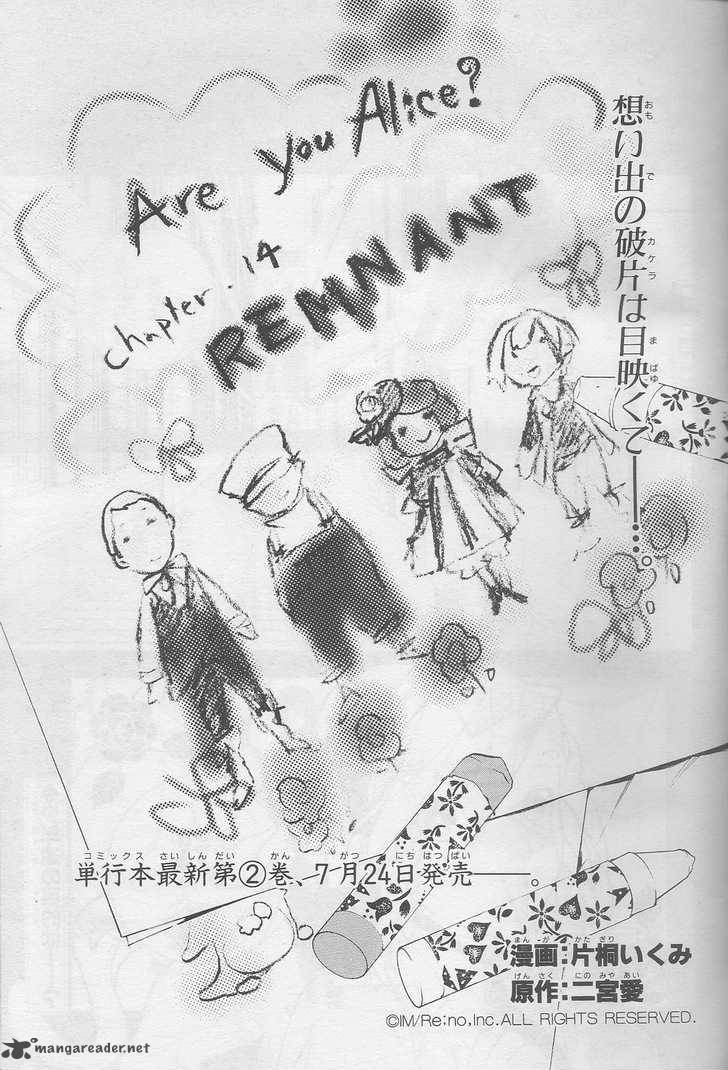 Are you Alice?
chapter.14
REMNANT
想い出の破片は目映くて――…。
単行本最新第②巻、7月24日発売――。
漫画:片桐いくみ
原作:二宮愛
©IM/Re:no,Inc.ALL RIGHTS RESERVED.
mangareader.net